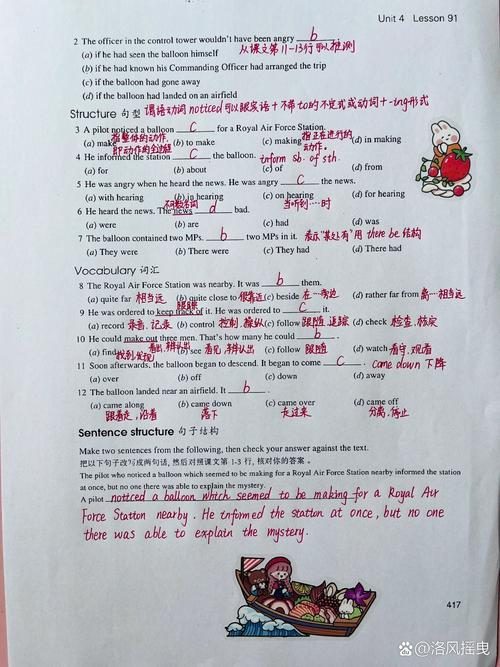 Unit 4 Lesson 91
2 The officer in the control tower wouldn't have been angry b
(a) if he had seen the balloon himself 从课文第11-13行可以推测
(b) if he had known his Commanding Officer had arranged the trip
(c) if the balloon had gone away
(d) if the balloon had landed on an airfield
Structure 句型 谓语动词noticed可以跟宾语+不带to的不定式或动词+-ing形式
3 A pilot noticed a balloon c for a Royal Air Force Station.
指整体的动作, 指正在进行的
(a) make (b) to make (c) making 动作。 (d) in making
即动作的全过程
4 He informed the station c the balloon. inform sb. of sth.
(a) for (b) about (c) of (d) from
5 He was angry when he heard the news. He was angry c the news.
(a) with hearing (b) in hearing (c) on hearing (d) for hearing
不可数名词 当听到……时
6 He heard the news. The news d bad.
(a) were (b) are (c) had (d) was
7 The balloon contained two MPs. b two MPs in it. 表示"某处有"用 there be 结构
(a) They were (b) There were (c) They had (d) There had
Vocabulary 词汇
8 The Royal Air Force Station was nearby. It was b them.
(a) quite far 相当远 (b) quite close to 很靠近 (c) beside 在…旁边 (d) rather far from 离…相当远
跟踪
9 He was ordered to keep track of it. He was ordered to c it.
(a) record 录音,记录 (b) control 控制,操纵 (c) follow 跟随,追踪 (d) check 检查,核实
看出,辨认出
10 He could make out three men. That's how many he could b.
(a) find 找到,发现 (b) see 看见,辨认出 (c) follow 跟随 (d) watch 看守,观看
11 Soon afterwards, the balloon began to descend. It began to come c. came down 下降
(a) over (b) off (c) down (d) away
12 The balloon landed near an airfield. It b.
(a) came along (b) came down (c) came over (d) came off
跟着走,沿着 落下 过来 分离,停止
Sentence structure 句子结构
Make two sentences from the following, then check your answer against the text.
把以下句子改写成两句话,然后对照课文第 1-3 行,核对你的答案。
The pilot who noticed a balloon which seemed to be making for a Royal Air Force Station nearby informed the station
at once, but no one there was able to explain the mystery.
A pilot noticed a balloon which seemed to be making for a Royal Air
Force Station nearby. He informed the station at once, but no one
there was able to explain the mystery.
417
@洛风摇曳